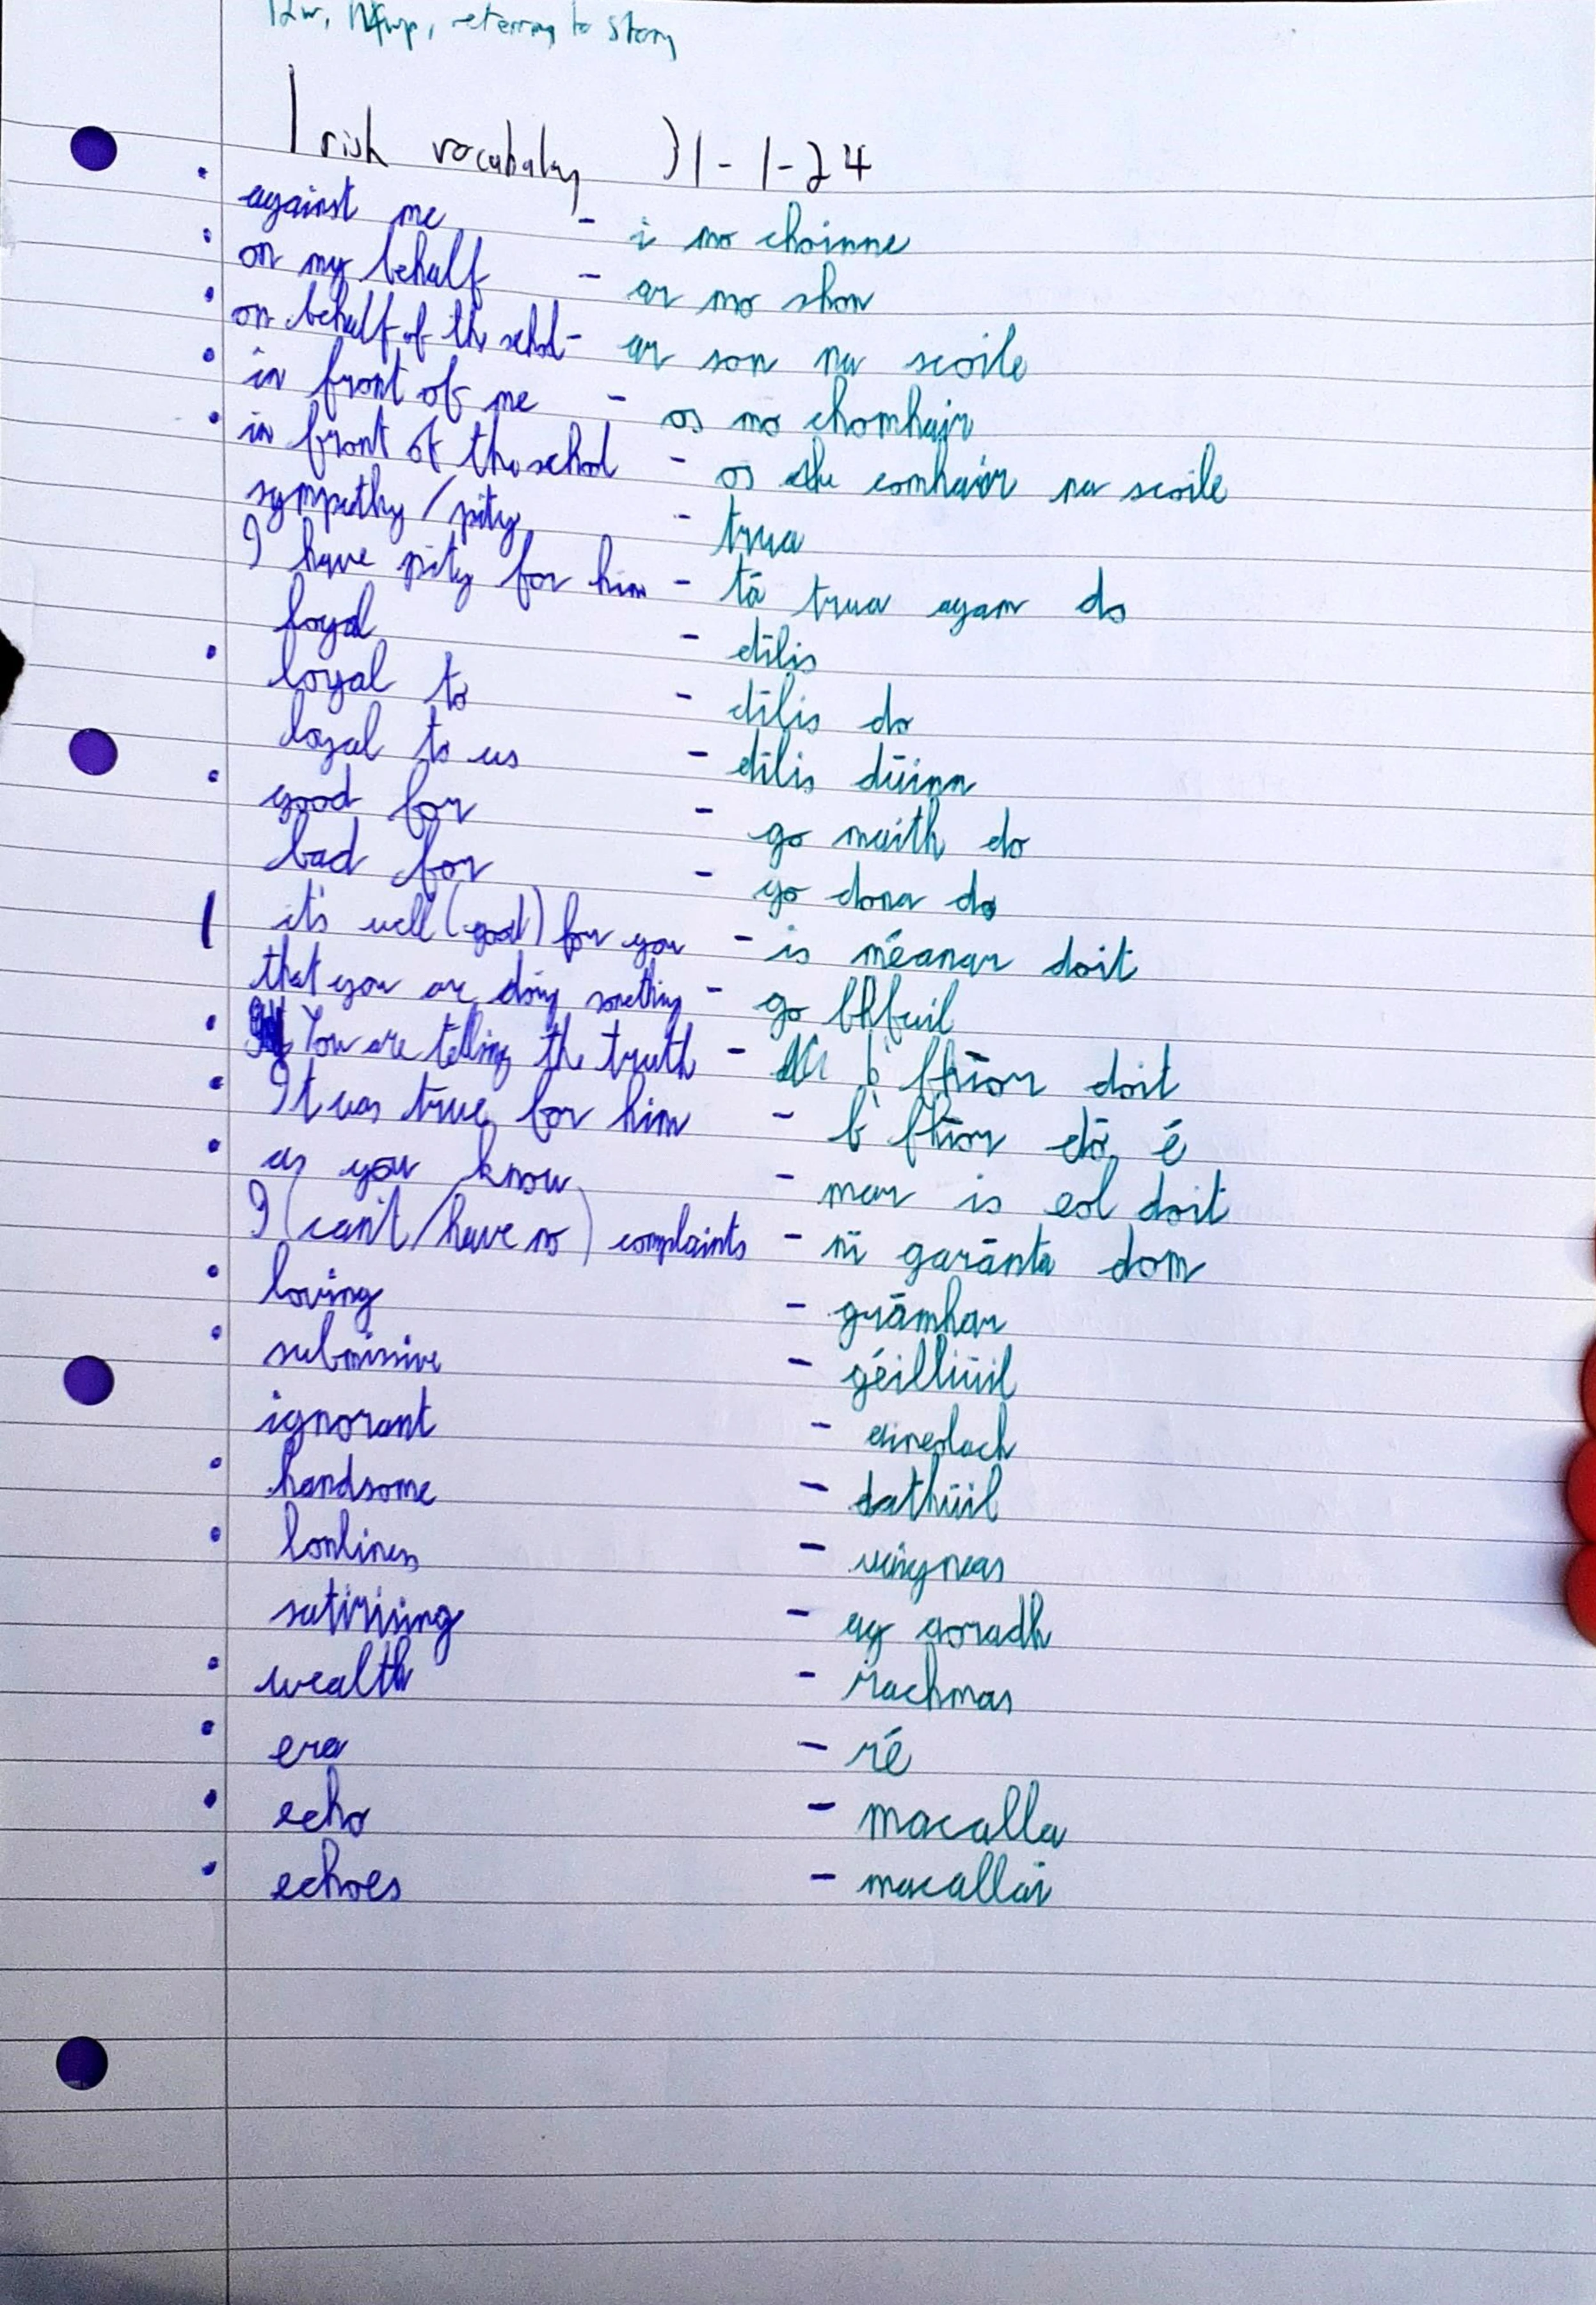 referring to story
Irish vocabulary 31-1-24
against me - i mo choinne
on my behalf - ar mo shon
on behalf of the schol - ar son na scoile
in front of me - os mo chomhair
in front of the school - os comhair na scoile
sympathy/pity - trua
I have pity for him - tá trua agam do
loyal - dílis
loyal to - dílis do
loyal to us - dílis dúinn
good for - go maith do
bad for - go dona do
it's well (good) for you - is méanar doit
that you are doing something - go bhfuil
You are telling the truth - b' fhíor doit
It was true for him - b' fhíor dó é
as you know - mar is eol doit
I (can't/have no) complaints - ní garánta dom
loving - grámhar
submissive - géilliúil
ignorant - aineolach
handsome - dathúil
lonliness - uaigneas
satirising - ag aoradh
wealth - rachmas
era - ré
echo - macalla
echoes - macallaí